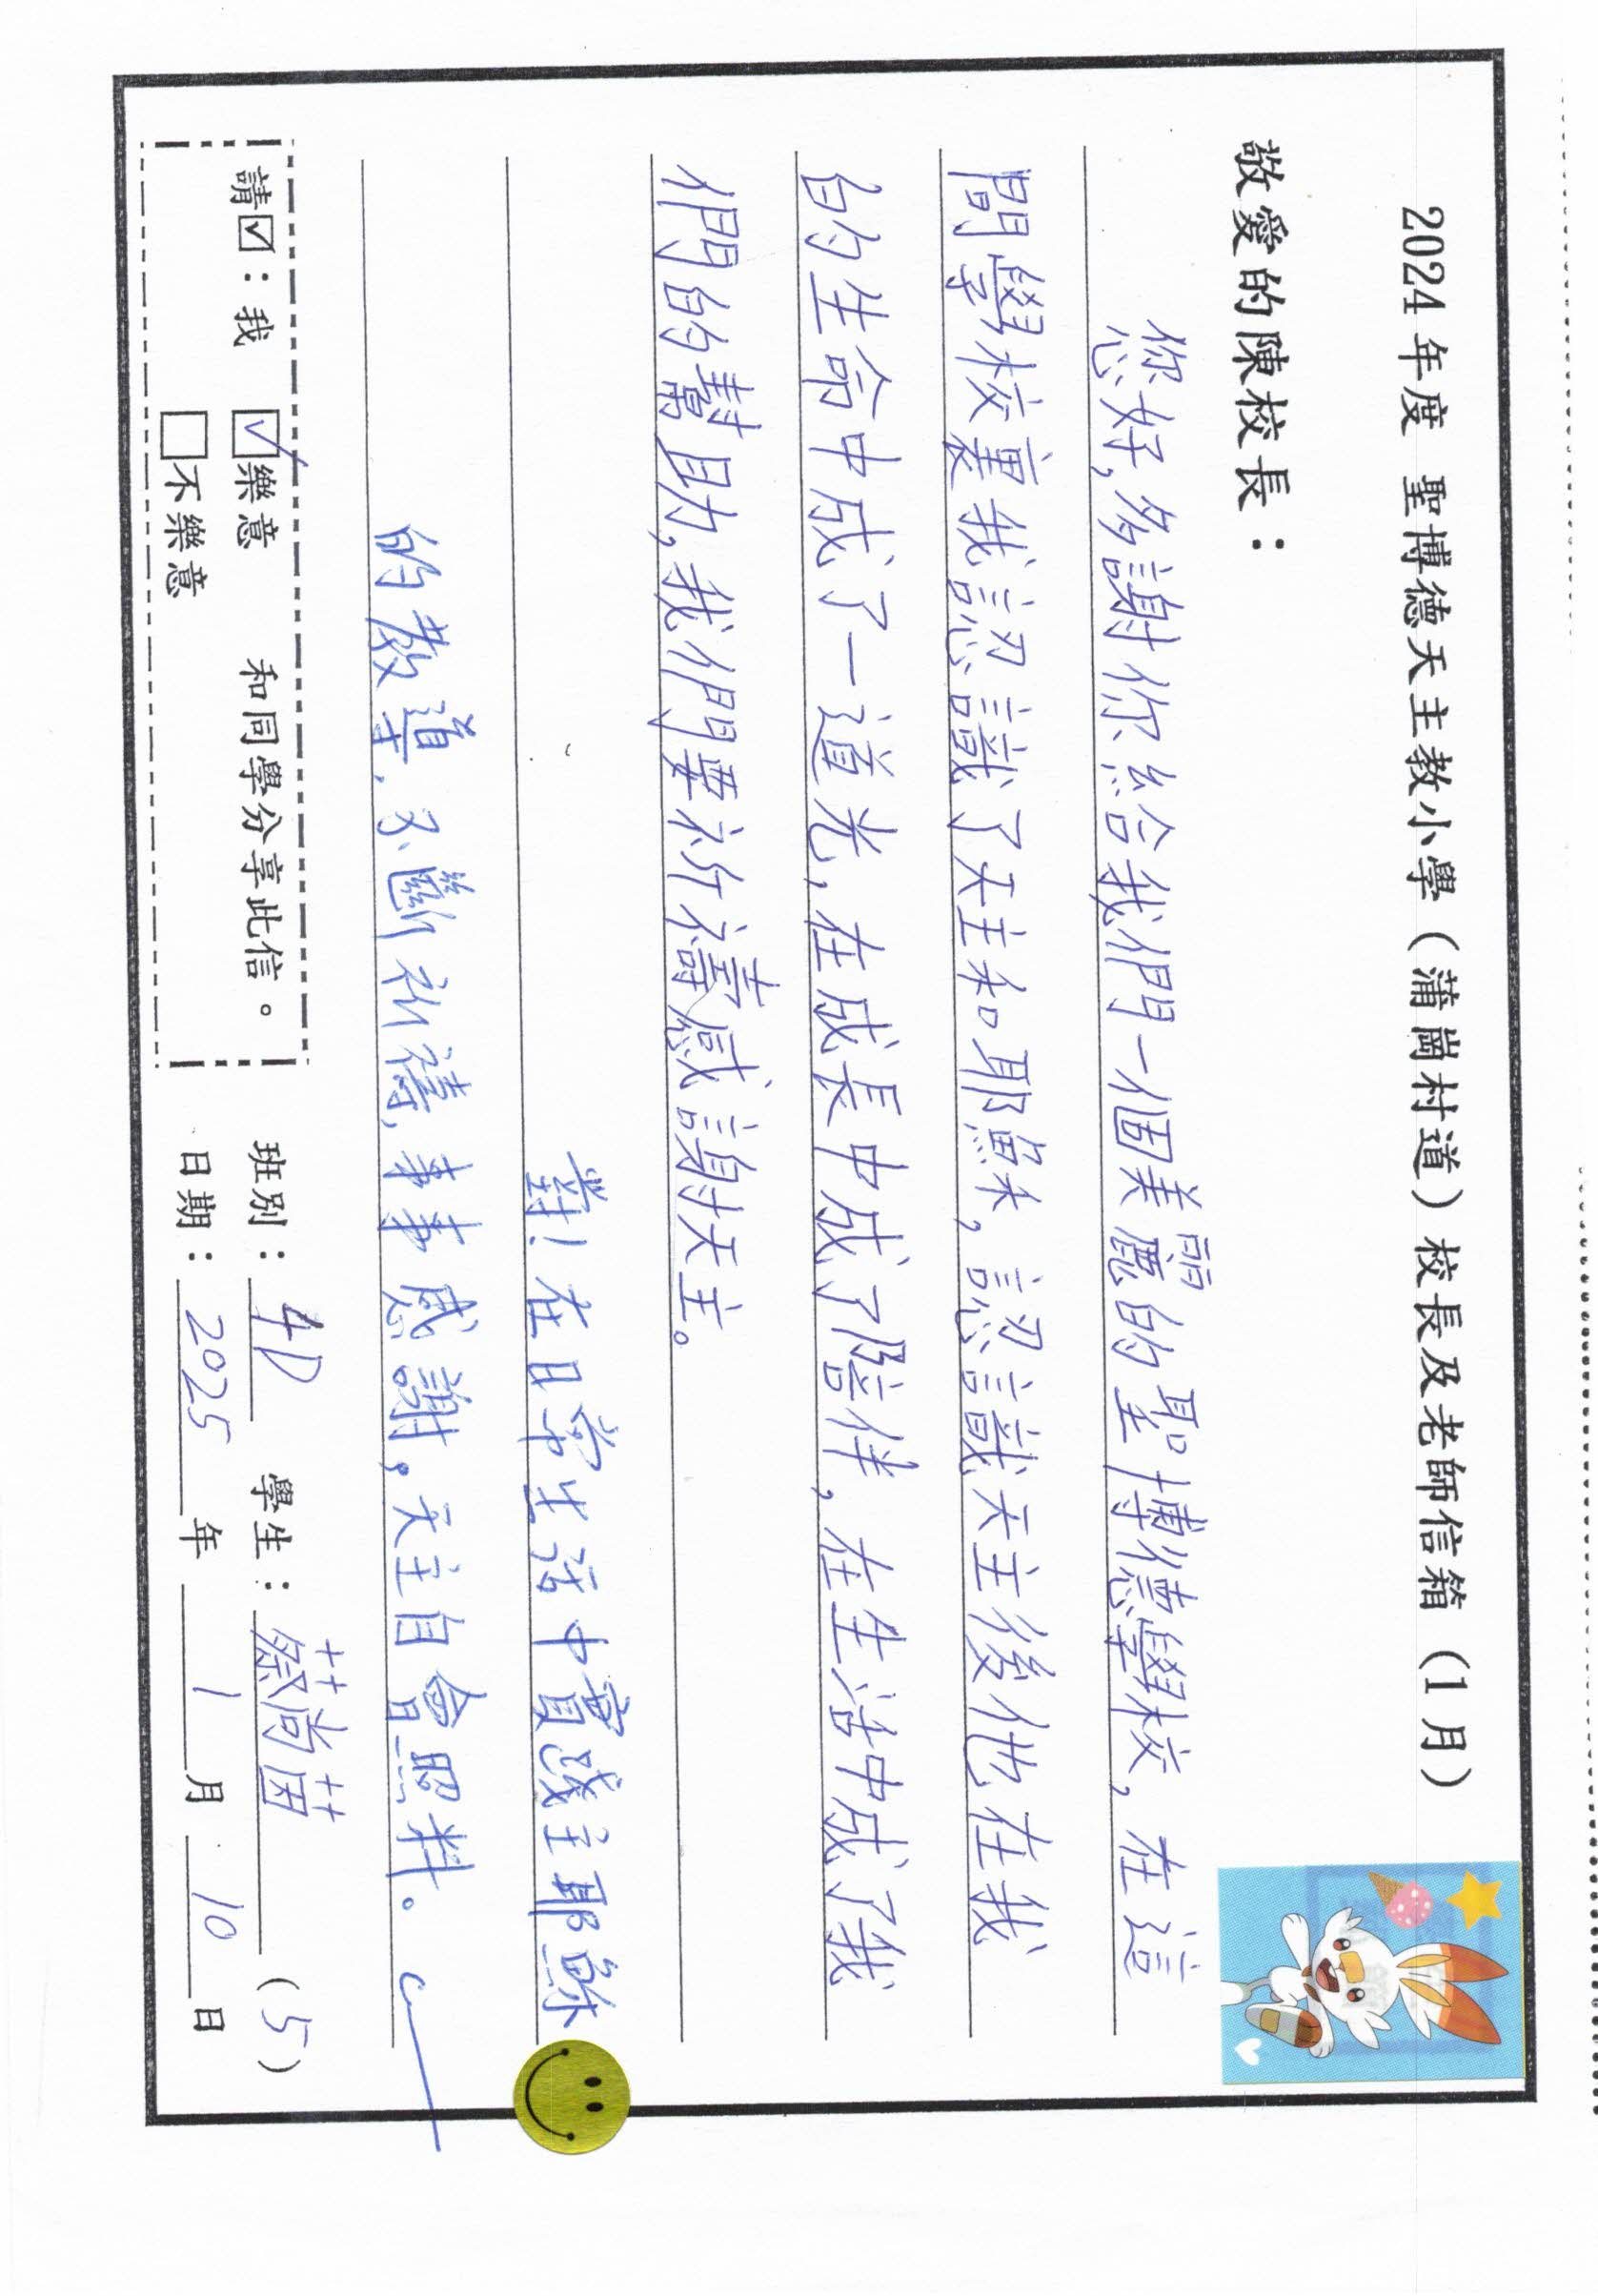 2024年度 聖博德天主教小學(蒲崗村道)校長及老師信箱(1月)
敬愛的陳校長：
您好,多謝你給我們一個美麗的聖博德學校,在這
間學校裏我認識了天主和耶穌,認識天主後他在我
的生命中成了一道光,在成長中成了陪伴,在生活中成了我
們的幫助,我們要祈禱感謝天主。
對!在日常生活中實踐主耶穌
的教導,不斷祈禱,事事感謝,天主自會照料。
請☑：我 ☑樂意 和同學分享此信。 班別：4D 學生：蔡尚茵 (5)
☐不樂意 日期：2025年1月10日